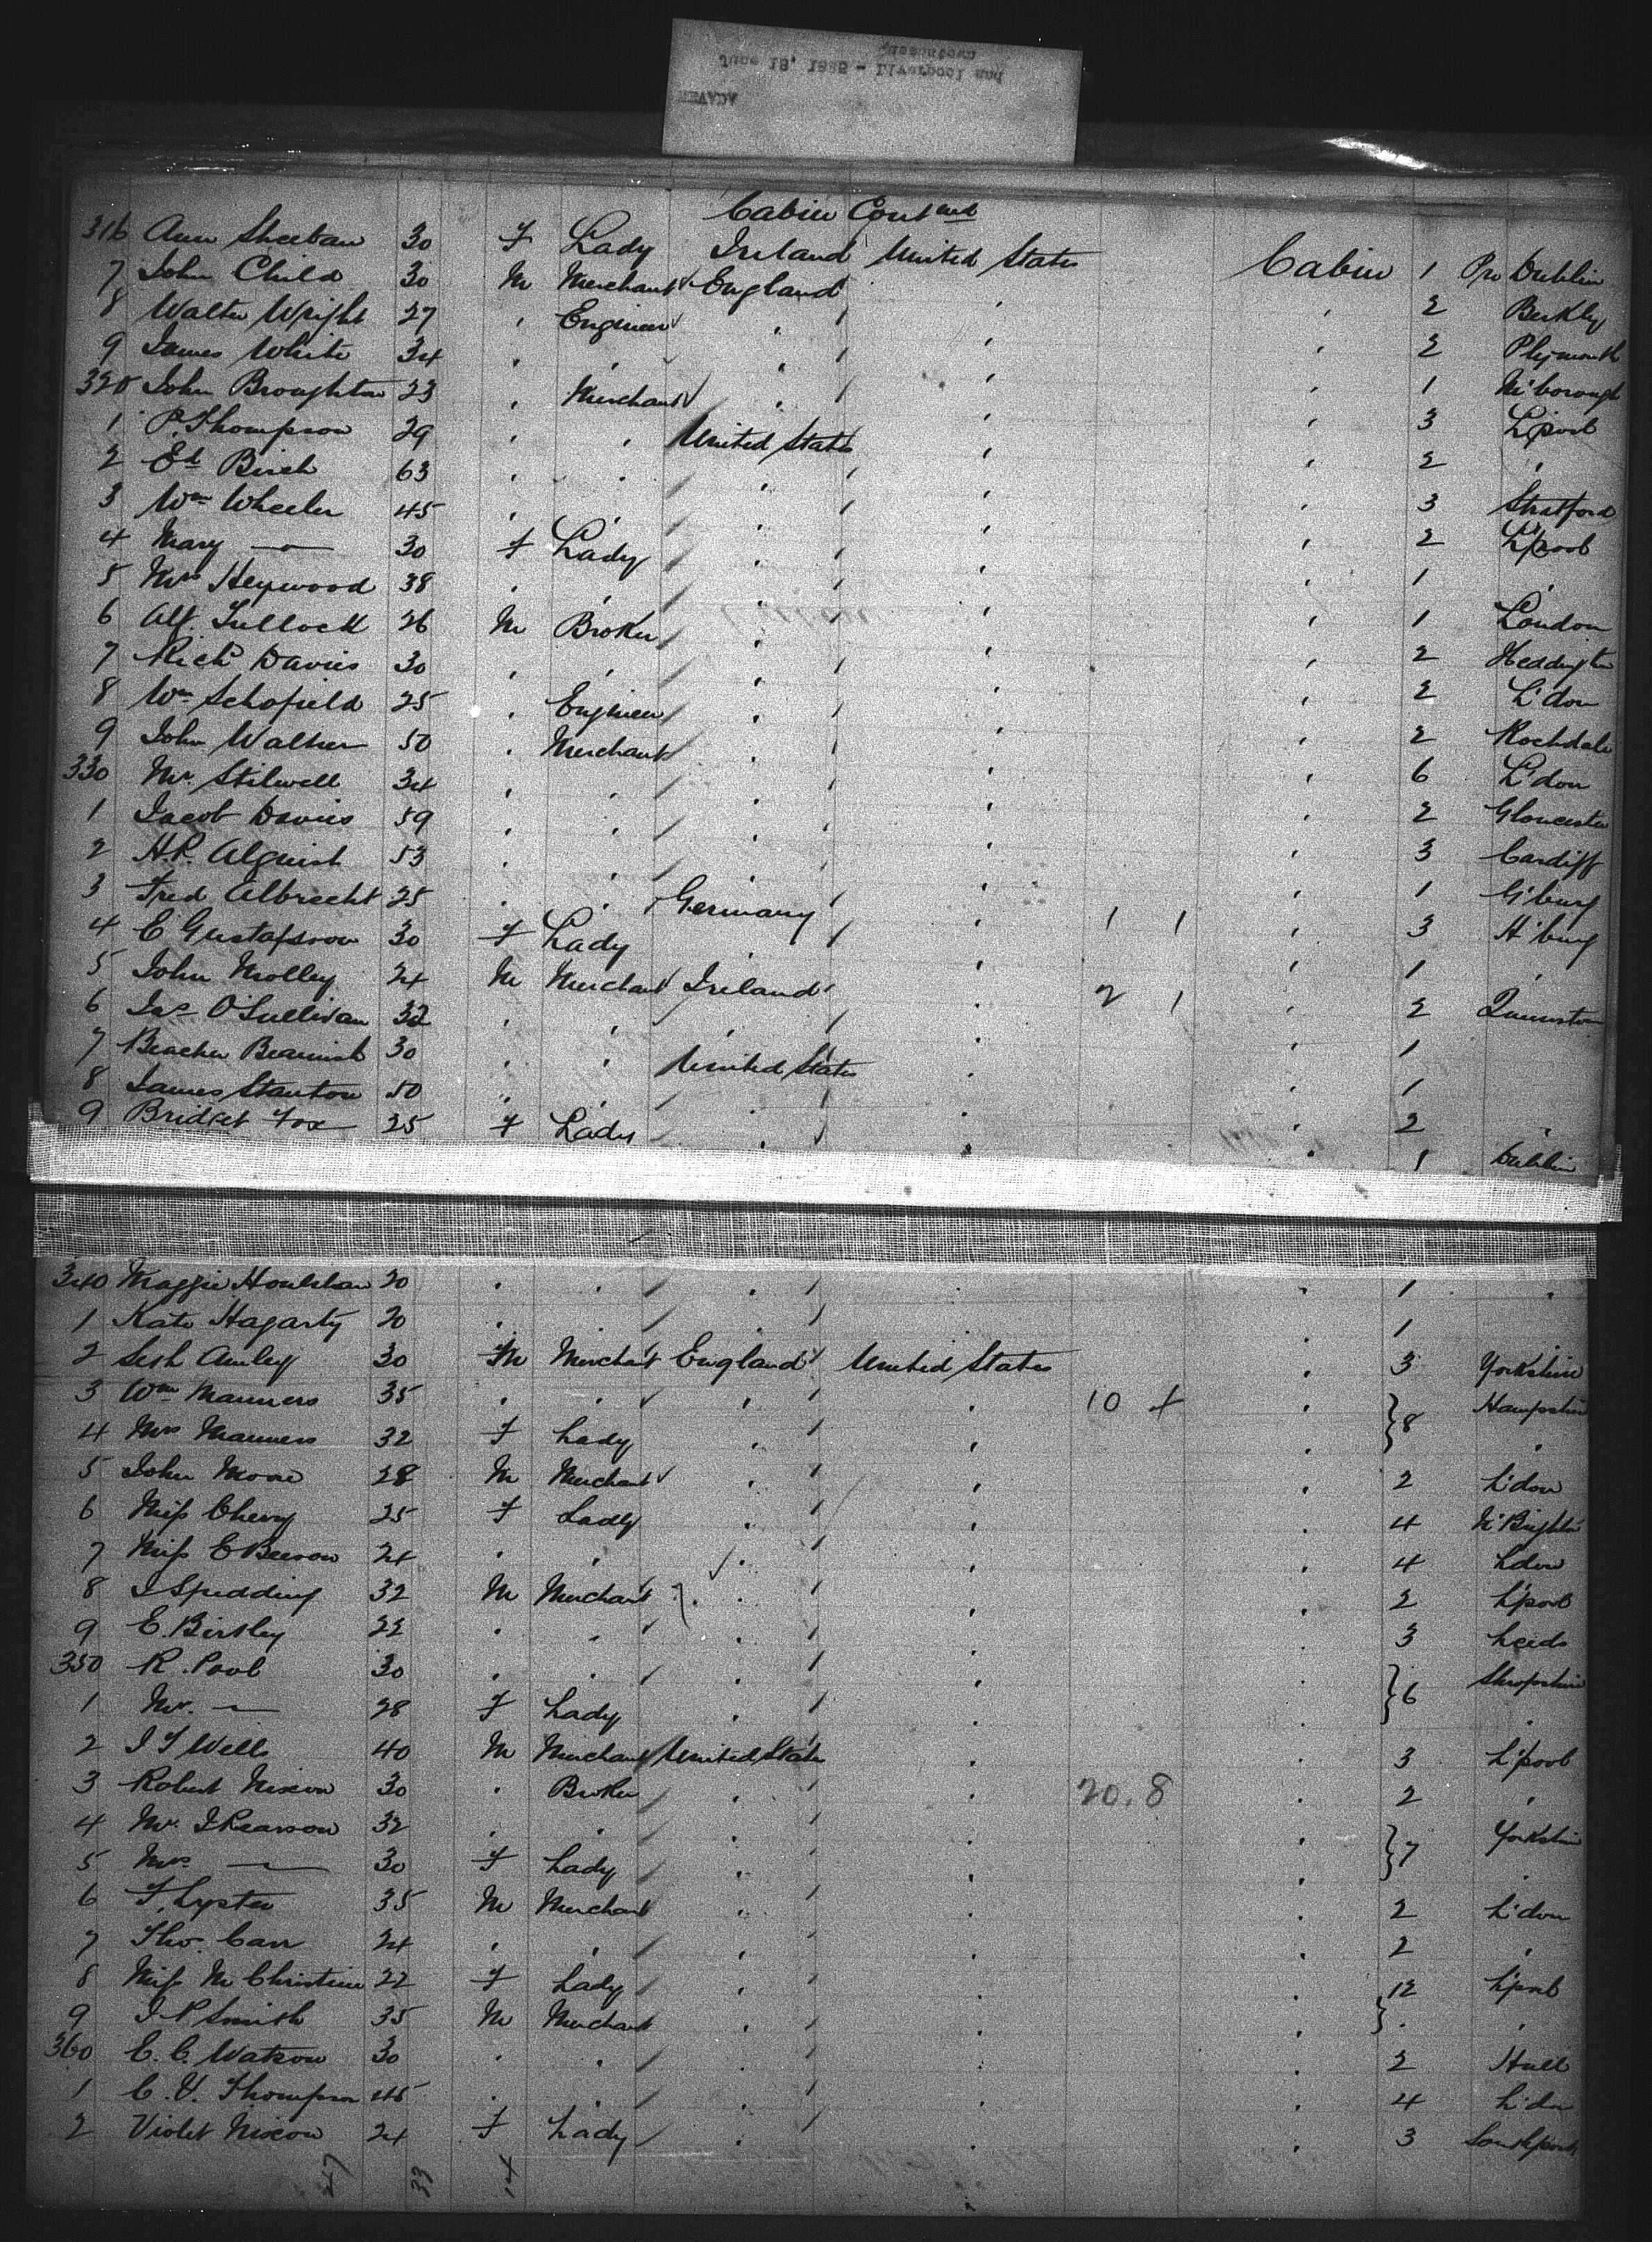 NEVADA
June 18, 1888 - Liverpool and
Queenstown
Cabin Contned
316 Ann Sheehan 30 F Lady Ireland United States Cabin 1 Pro Dublin
7 John Child 30 M Merchant England 2 Berkley
8 Walter Wright 27 " Engineer " " " 2 Plymouth
9 James White 34 " " " " " 1 M'borough
320 John Broughton 23 " Merchant " " " 3 L'pool
1 P. Thompson 29 " " United States " " 2 "
2 Ed Birch 63 " " " " " 3 Stratford
3 Wm Wheeler 45 " " " " " 2 L'pool
4 Mary — 30 F Lady " " " 1 "
5 Mrs Heywood 38 " " " " " 1 London
6 Alf. Tullock 26 M Broker " " " 2 Heddington
7 Richd Davies 30 " " " " " 2 L'don
8 Wm Schofield 25 " Engineer " " " 2 Rochdale
9 John Walker 50 " Merchant " " " 6 L'don
330 Mr. Stilwell 34 " " " " " 2 Gloucester
1 Jacob Davies 59 " " " " " 3 Cardiff
2 H.P. Alquist 53 " " " " " 1 G'burg
3 Fred Albrecht 25 " " Germany " 1 1 " 3 H'burg
4 E Gustafson 30 F Lady " " " 1 "
5 John Molley 24 M Merchant Ireland " 2 1 " 2 Queenstown
6 Jas O'Sullivan 32 " " " " " 1
7 Beacher Beamish 30 " " United States " " 1
8 James Stanton 50 " " " " " 2 "
9 Bridget Fox 25 F Lady " " " 1 Dublin
340 Maggie Houlahan 20 " " " " " 1 "
1 Kate Hagarty 20 " " " " 1 "
2 Seth Amley 30 M Merchant England United States " 3 Yorkshire
3 Wm Manners 35 " " " " 10 4 " } 8 Hampshire
4 Mrs Manners 32 F Lady " " " "
5 John Moore 28 M Merchant " " " 2 L'don
6 Miss Cherry 25 F Lady " " " 4 N'Brighton
7 Miss E Beeson 24 " " " " " 4 Ldon
8 J Spedding 32 M Merchant " " " 2 L'pool
9 E. Birtley 22 " " " " " 3 Leeds
350 R. Pool 30 " " " " " } 6 Shropshire
1 Mr. — 28 F Lady " " " "
2 J T Wells 40 M Merchant United States " " 3 L'pool
3 Robert Nixon 30 " Broker " " 20. 8 " 2 "
4 Mr. J Pearson 32 " " " " " } 7 Yorkshire
5 Mrs — 30 F Lady " " " "
6 F. Lyster 35 M Merchant " " " 2 L'don
7 Tho. Carr 24 " " " " " 2 "
8 Miss M Christine 22 F Lady " " " } 12 L'pool
9 J P Smith 35 M Merchant " " " " "
360 C. C. Watson 30 " " " " " 2 Hull
1 C. V. Thompson 45 " " " " " 4 L'don
2 Violet Nixon 24 F Lady " " " 3 Southport
47 33 14